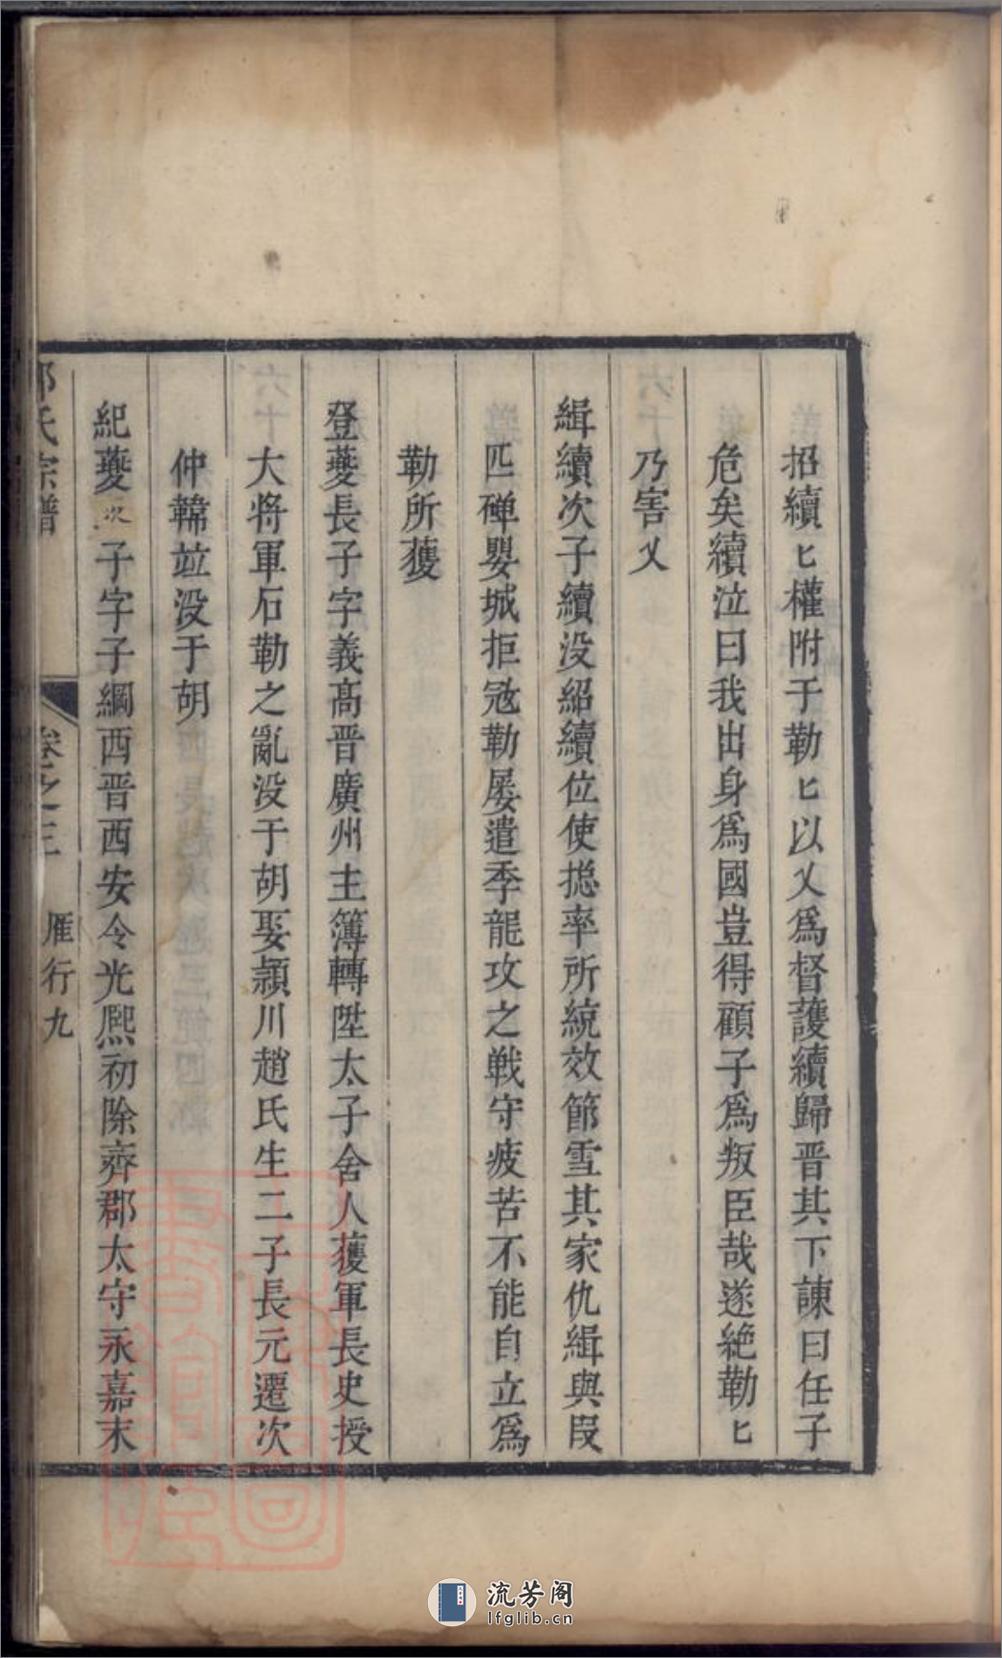 招續匕權附于勒匕以乂爲督護續歸晋其下諫曰任子
危矣續泣曰我出身爲國豈得顧子爲叛臣哉遂絶勒匕
乃害乂
緝續次子續没紹續位使揔率所統效節雪其家仇緝與叚
匹磾嬰城拒冦勒屡遣季龍攻之戦守疲苦不能自立爲
勒所獲
登夔長子字義髙晋廣州主簿轉陞太子舍人獲軍長史授
大将軍石勒之亂没于胡娶頴川趙氏生二子長元遷次
仲韓竝没于胡
紀夔次子字子綱西晋西安令光熙初除齊郡太守永嘉末
氏宗譜 卷之三 雁行九
流芳阁
lfglib.cn